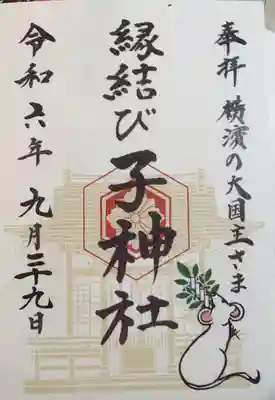 奉拝 横濱の大国主さま
縁結び 子神社
令和六年 九月二十九日